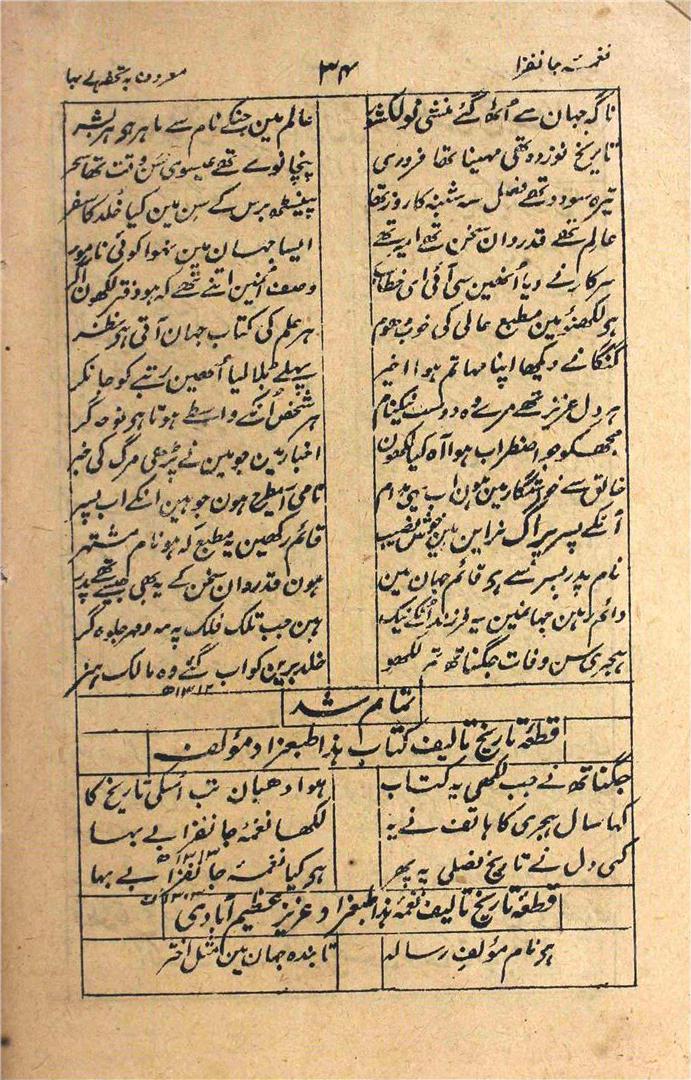 نغمۂ جانفزا ۳۴ معروف بہ تحفۂ بے بہا
ناگہ جہان سے اُٹھ گئے منشی نولکشور عالم مین جنکے نام سے ماہر ہو ہر بشر
تاریخ نوزدہ تھی مہینا تھا فروری پنچانوے تھے عیسوی سن وقت تھا سحر
تیرہ سو دو تھے فصل سہ شنبہ کا روز تھا پینسٹھ برس کے سن مین کیا خُلد کا سفر
عالم تھے قدردان سخن تھے ادیب تھے ایسا جہان مین نہوا کوئی نامور
سرکار نے دیا اُنھین سی آئی ای خطاب وصف اُنمین اتنے تھے کہ ہو دفتر لکھون اگر
ہو لکھنؤ مین مطبع عالی کی خوب دھوم ہر علم کی کتاب جہان آتی ہو نظر
گنگا نے دیکھا اپنا مہاتم ہوا اخیر پہلے بُلا لیا اُنھین رتبے کو جانکر
ہر دل عزیز تھے مرے وہ دوست نیکنام ہر شخص اُنکے واسطے ہوتا ہو نوحہ گر
مجھکو جو اضطراب ہوا آہ کیا لکھون اخبار مین جو مین نے پڑھی مرگ کی خبر
خالق سے خواستگار مین ہون اب یہی مدام نامی اسیطرح ہون جو ہین انکے اب پسر
اُنکے پسر پراگ نراین ہین خوش نصیب قائم رکھین یہ مطبع کہ ہو نام مشتہر
نام پدر پسر سے ہو قائم جہان مین ہون قدردان سخن کے یہ بھی جیسے تھے پدر
دائم رہین جہانمین یہ فرزند اُنکے نیک ہین جب تلک فلک پہ مہ و مہر جلوہ گر
ہجری سن وفات جگناتھ تم لکھو خلد برین کو اب گئے وہ مالک ہنر
۱۳۱۲ھ
تمام شد
قطعۂ تاریخ تالیف کتاب ہذا طبعزاد مؤلف
جگناتھ نے جب لکھی یہ کتاب ہوا دھیان تب اُسکی تاریخ کا
کہا سال ہجری کا ہاتف نے یہ لکھا نغمۂ جانفزا بے بہا
کہی دل نے تاریخ فصلی یہ پھر ہو کیا نغمۂ جانفزا بے بہا
قطعۂ تاریخ تالیف نغمۂ ہذا طبعزاد عزیز عظیم آبادی
ہو نام مؤلف رسالہ تابندہ جہان مین مثل اختر